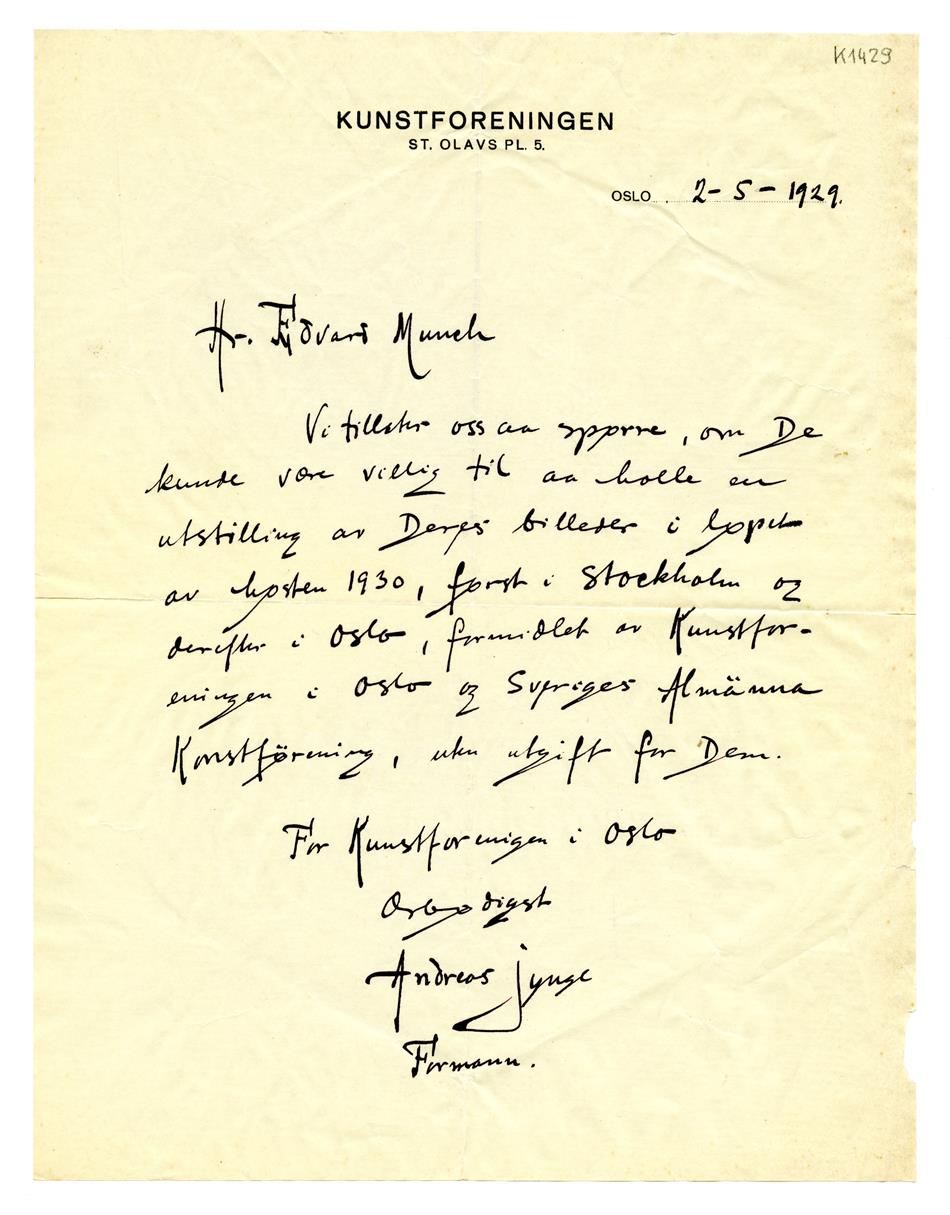 K1429
KUNSTFORENINGEN
ST. OLAVS PL. 5.
OSLO 2-5-1929.
Hr. Edvard Munch
Vi tillater oss aa spørre, om De
kunde være villig til aa holle en
utstilling av Deres billeder i løpet
av høsten 1930, først i Stockholm og
derefter i Oslo, formidlet av Kunstfor-
eningen i Oslo og Sveriges Almänna
Konstförening, uten utgift for Dem.
For Kunstforenigen i Oslo
Ærbødigst
Andreas Jynge
Formann.